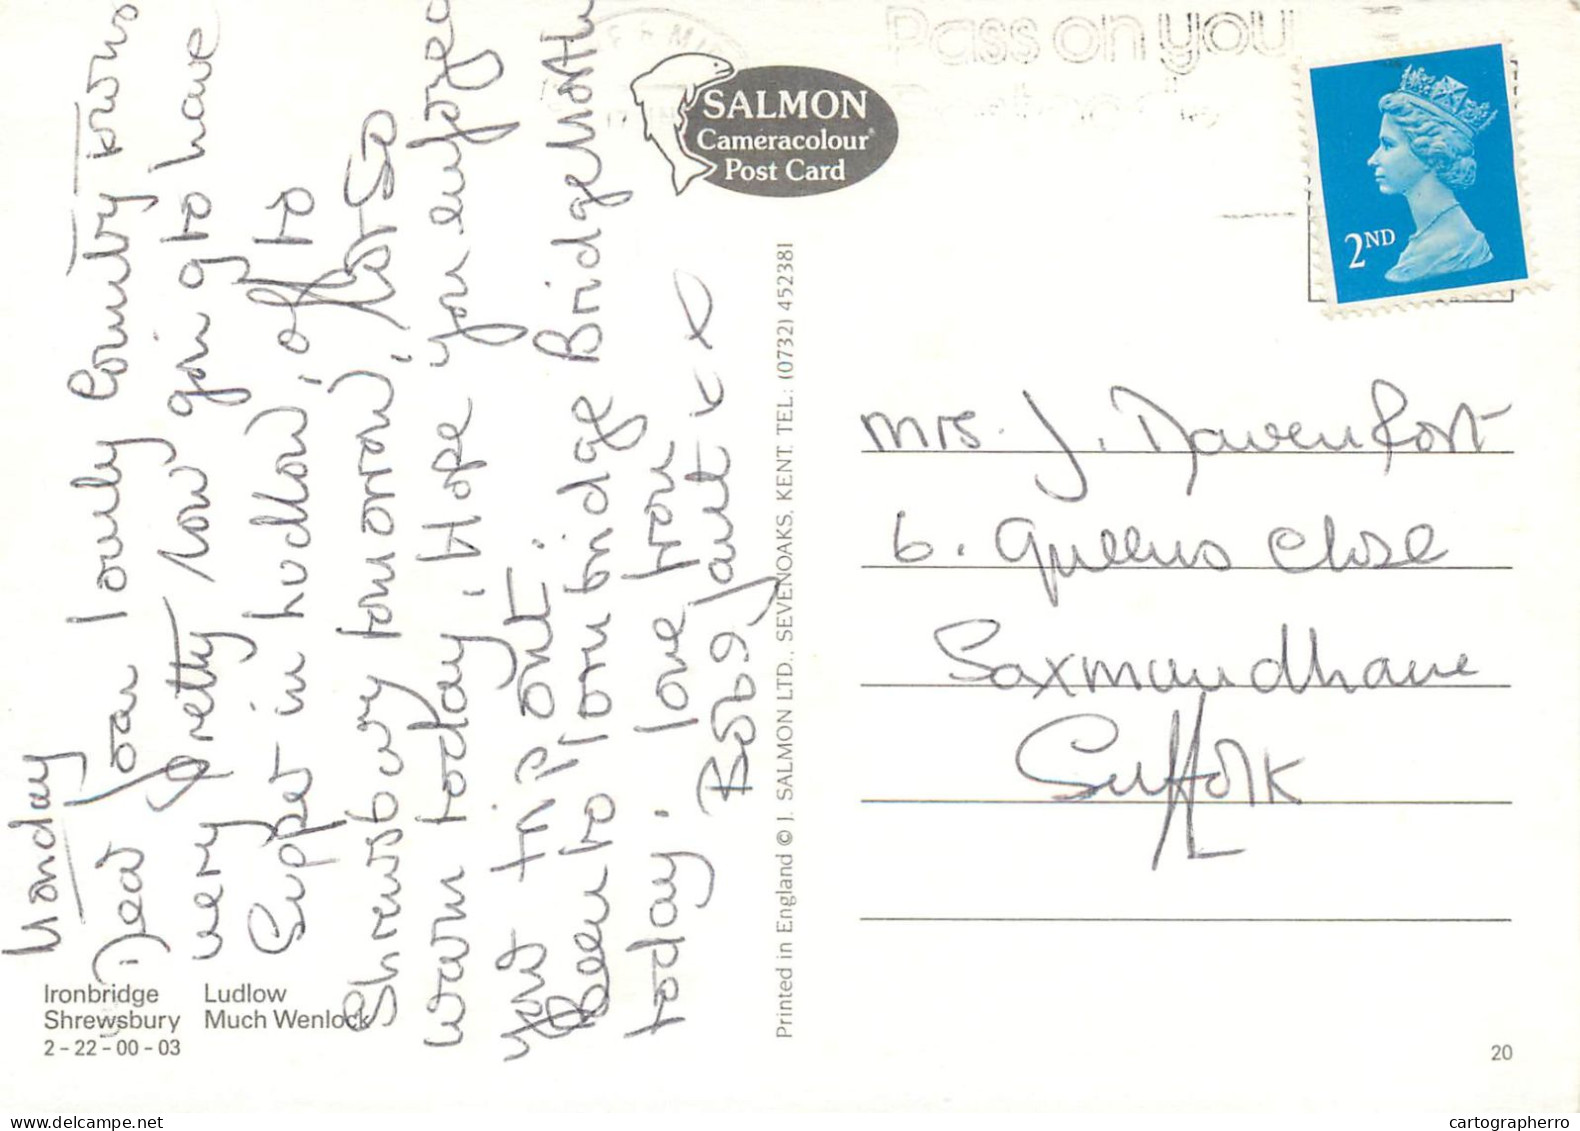 Monday
Dear Joan lovely Country towns
very pretty now going to have
Supper in Ludlow, of to
Shrewsbury tomorrow, also so
warm today, Hope you enjoyed
your trip out.
Been to Iron bridge Bridge North
today. love Ron
Bob & Janet xx
Ironbridge Ludlow
Shrewsbury Much Wenlock
2-22-00-03
Printed in England © J. SALMON LTD., SEVENOAKS, KENT. TEL.: (0732) 452381
SALMON
Cameracolour®
Post Card
Pass on you
2ND
Mrs. J. Davenport
6. Queens Close
Saxmundham
Suffolk
20
cartographerro